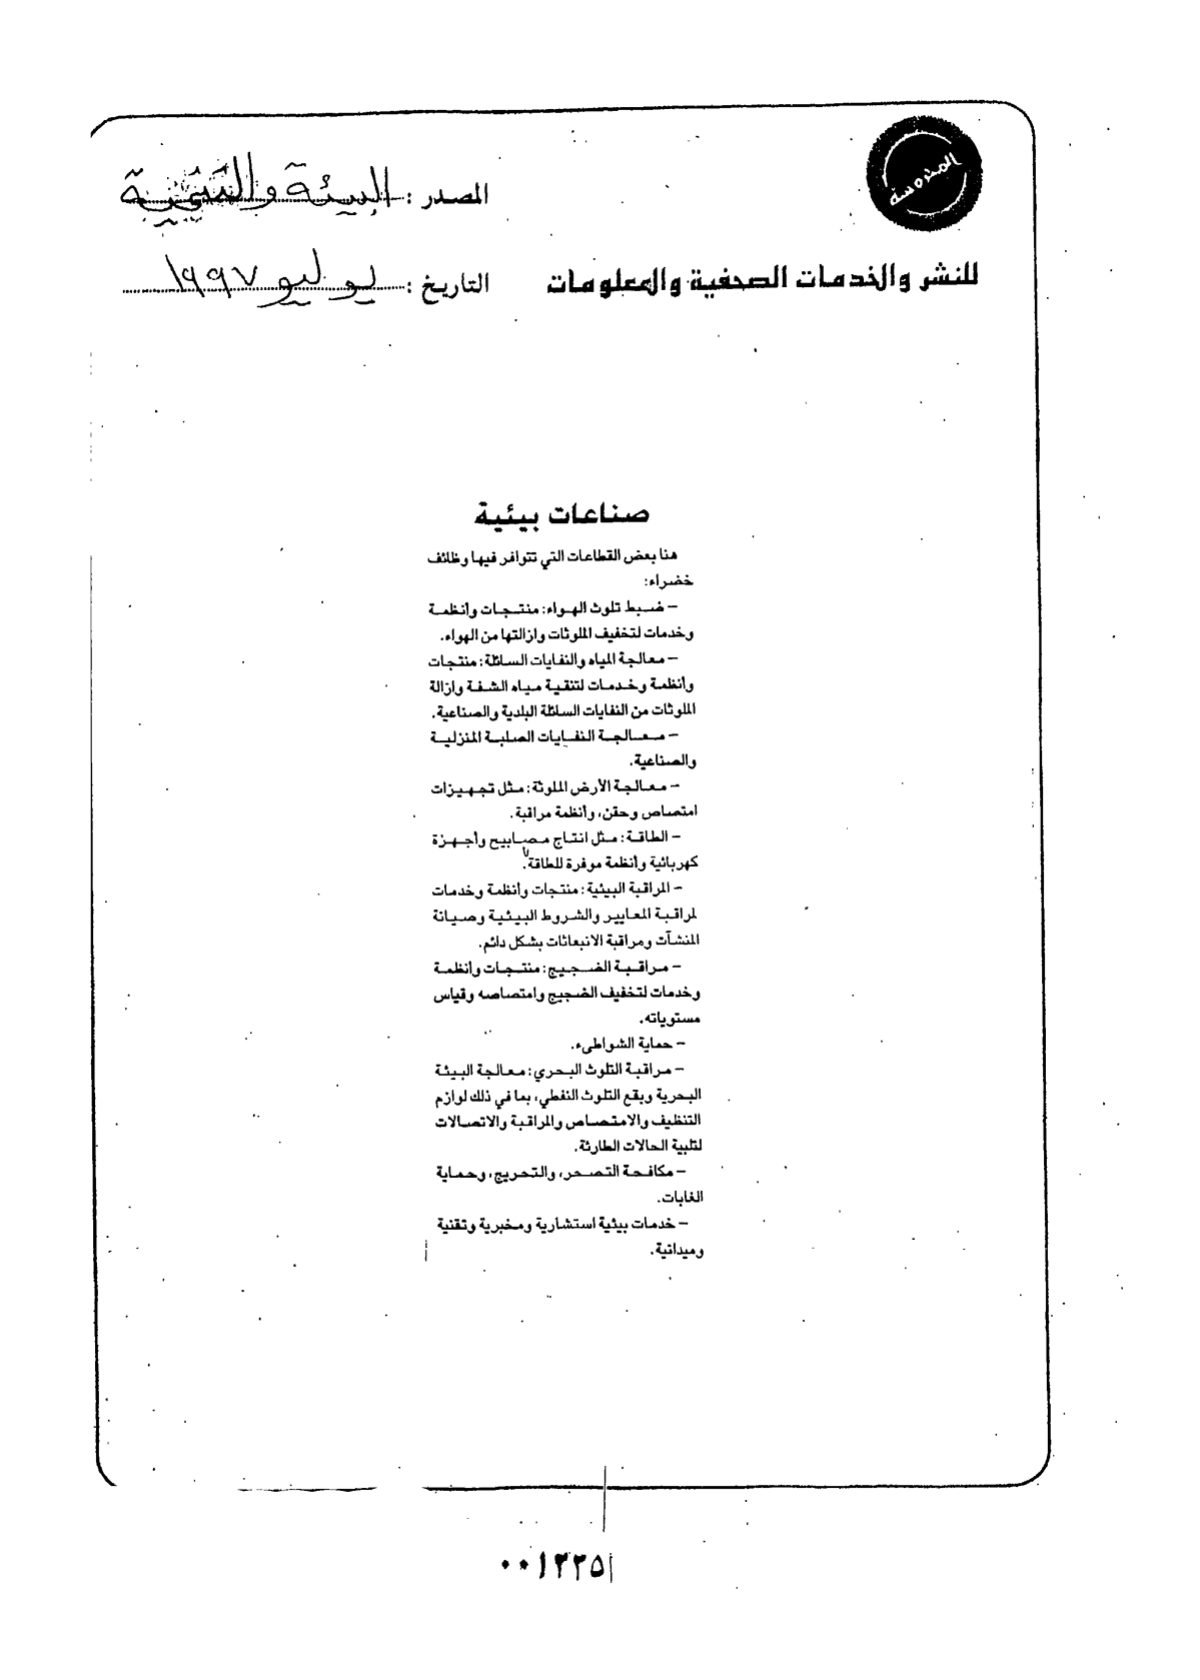 المصدر : البيئة والتنمية
للنشر والخدمات الصحفية والمعلومات
التاريخ : يوليو ١٩٩٧
صناعات بيئية
هنا بعض القطاعات التي تتوافر فيها وظائف
خضراء:
– ضبط تلوث الهواء: منتجات وأنظمة
وخدمات لتخفيف الملوثات وازالتها من الهواء.
– معالجة المياه والنفايات السائلة: منتجات
وأنظمة وخدمات لتنقية مياه الشفة وازالة
الملوثات من النفايات السائلة البلدية والصناعية.
– معالجة النفايات الصلبة المنزلية
والصناعية.
– معالجة الأرض الملوثة: مثل تجهيزات
امتصاص وحقن، وأنظمة مراقبة.
– الطاقة: مثل انتاج مصابيح وأجهزة
كهربائية وأنظمة موفرة للطاقة.
– المراقبة البيئية: منتجات وأنظمة وخدمات
لمراقبة المعايير والشروط البيئية وصيانة
المنشآت ومراقبة الانبعاثات بشكل دائم.
– مراقبة الضجيج: منتجات وأنظمة
وخدمات لتخفيف الضجيج وامتصاصه وقياس
مستوياته.
– حماية الشواطىء.
– مراقبة التلوث البحري: معالجة البيئة
البحرية وبقع التلوث النفطي، بما في ذلك لوازم
التنظيف والامتصاص والمراقبة والاتصالات
لتلبية الحالات الطارئة.
– مكافحة التصحر، والتحريج، وحماية
الغابات.
– خدمات بيئية استشارية ومخبرية وتقنية
وميدانية.